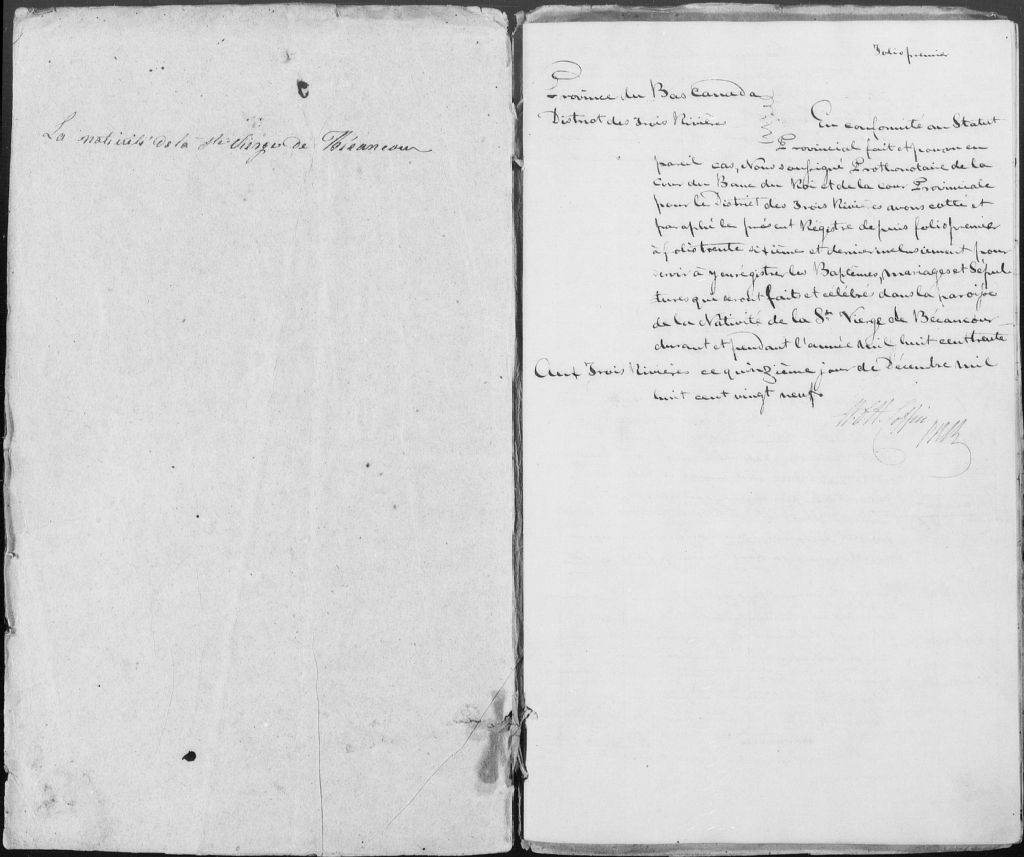 La nativité de la Ste Vierge de Bécancour
Folio premier
Province du Bas Canada
District des Trois Rivières
En conformité au Statut
Provincial fait et pourvu en
pareil cas, Nous soussigné Prothonotaire de la
Cour du Banc du Roi et de la cour Provinciale
pour le District des Trois Rivières avons cotté et
paraphé le présent Régistre depuis folio premier
à folio trente sixième et dernier inclusivement pour
servir à y enrégistrer les Baptêmes, mariages et Sépul-
tures qui seront faits et célébrés dans la paroisse
de la Nativité de la Ste Vierge de Bécancour
durant et pendant l'année mil huit cent trente
Aux Trois Rivières ce quinzième jour de Décembre mil
huit cent vingt neuf
Coffin